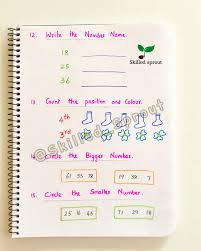 12. Write the Number Name.
Skilled sprout
18
25
36
13. Count the position and Colour.
4th
3rd
@skilled_sprout
14. Circle the Bigger Number.
61 35 78 19 38 7
15. Circle the Smaller Number.
25 16 46 71 29 18